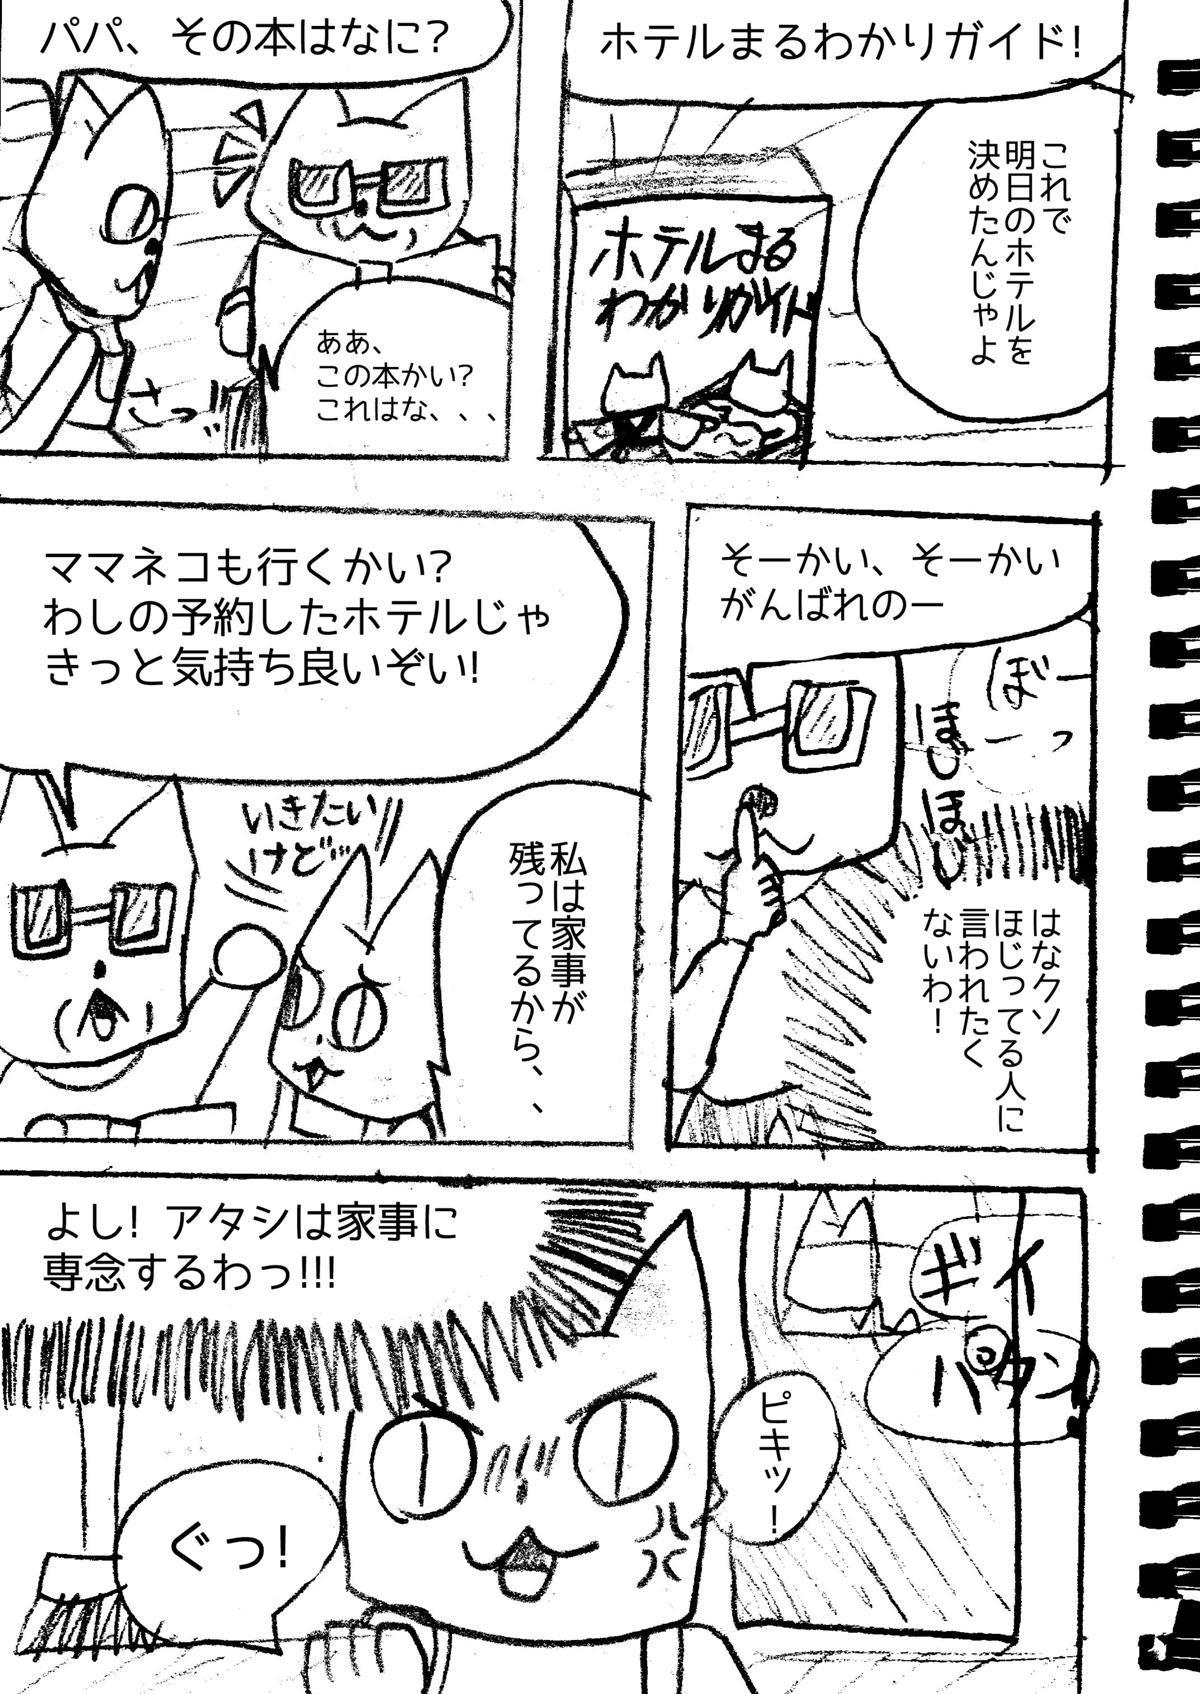 パパ、その本はなに?
ああ、
この本かい?
これはな、、、
さっ
ホテルまるわかりガイド!
これで
明日のホテルを
決めたんじゃよ
ホテルまる
わかりガイド
ママネコも行くかい?
わしの予約したホテルじゃ
きっと気持ち良いぞい!
いきたい
けど…
私は家事が
残ってるから、、
そーかい、そーかい
がんばれのー
ぼーっ
ほじ
ほじ
はなクソ
ほじってる人に
言われたく
ないわ!
よし! アタシは家事に
専念するわっ!!!
ギイ
パタン
ピキッ!
ぐっ!